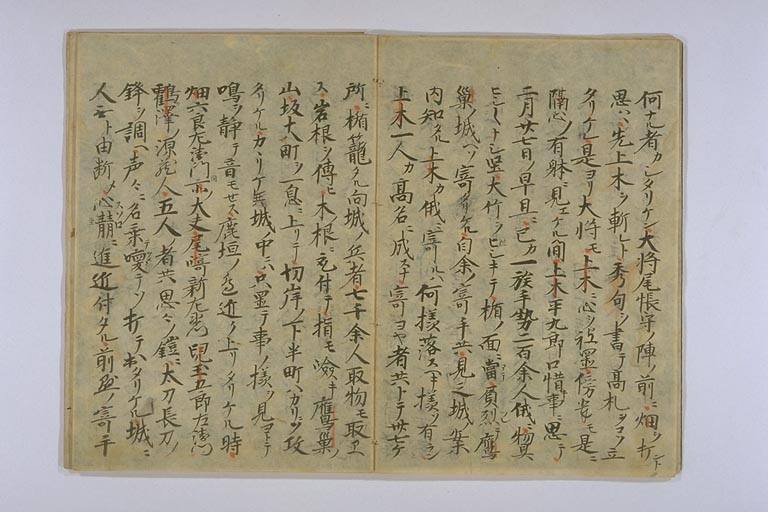 何ナル者カシタリケン大将尾張守ノ陣ノ前ニ畑ヲ打ント
思ハヽ先上木ヲ斬レト秀句ヲ書テ高札ヲコソ立
タリケレ是ヨリ大将モ上木ニ心ヲ被置傍輩モ是ニ
隔心ノ有躰ニ見エケル間上木平九郎口惜事ニ思テ
二月廿七日ノ早旦ニ己カ一族手勢二百余人俄ニ物具
ヒシ〳〵トシ堅メ大竹ヲヒシキテ楯ノ面ニ當負烈鷹
巣城ヘソ寄タリケル自余ノ寄手共見之城ノ案
内知タル上木カ俄ニ寄ルハ何様落スヘキ様ソ有ラン
上木一人カ高名ニ成スナ寄ヨヤ者共トテ卅七ケ
所ニ楯籠タル向城ノ兵者七千余人取物モ取アエ
ス岩根ヲ傳ヒ木根ニ取付テ指モ嶮キ鷹巣ノ
山坂十八町ヲ一息ニ上リテ切岸ノ下半町ハカリヲソ攻
タリケルカヽリケレ共城中ニハ只置テ事ノ様ヲ見ヨトテ
鳴ヲ静テ音モセス鹿垣ノ際近ク上リタリケル時
畑六良左衛門亦大丈尾崎新左衛門児玉五郎左衛門
鶴澤源蔵人五人ノ者共思々ノ鎧ニ太刀長刀ノ
鋒ヲ調ヘ声々ニ名乗喚テソ打テ出タリケル城ニ
人云ト由断メ心静ニ進近付タル前陣ノ寄手